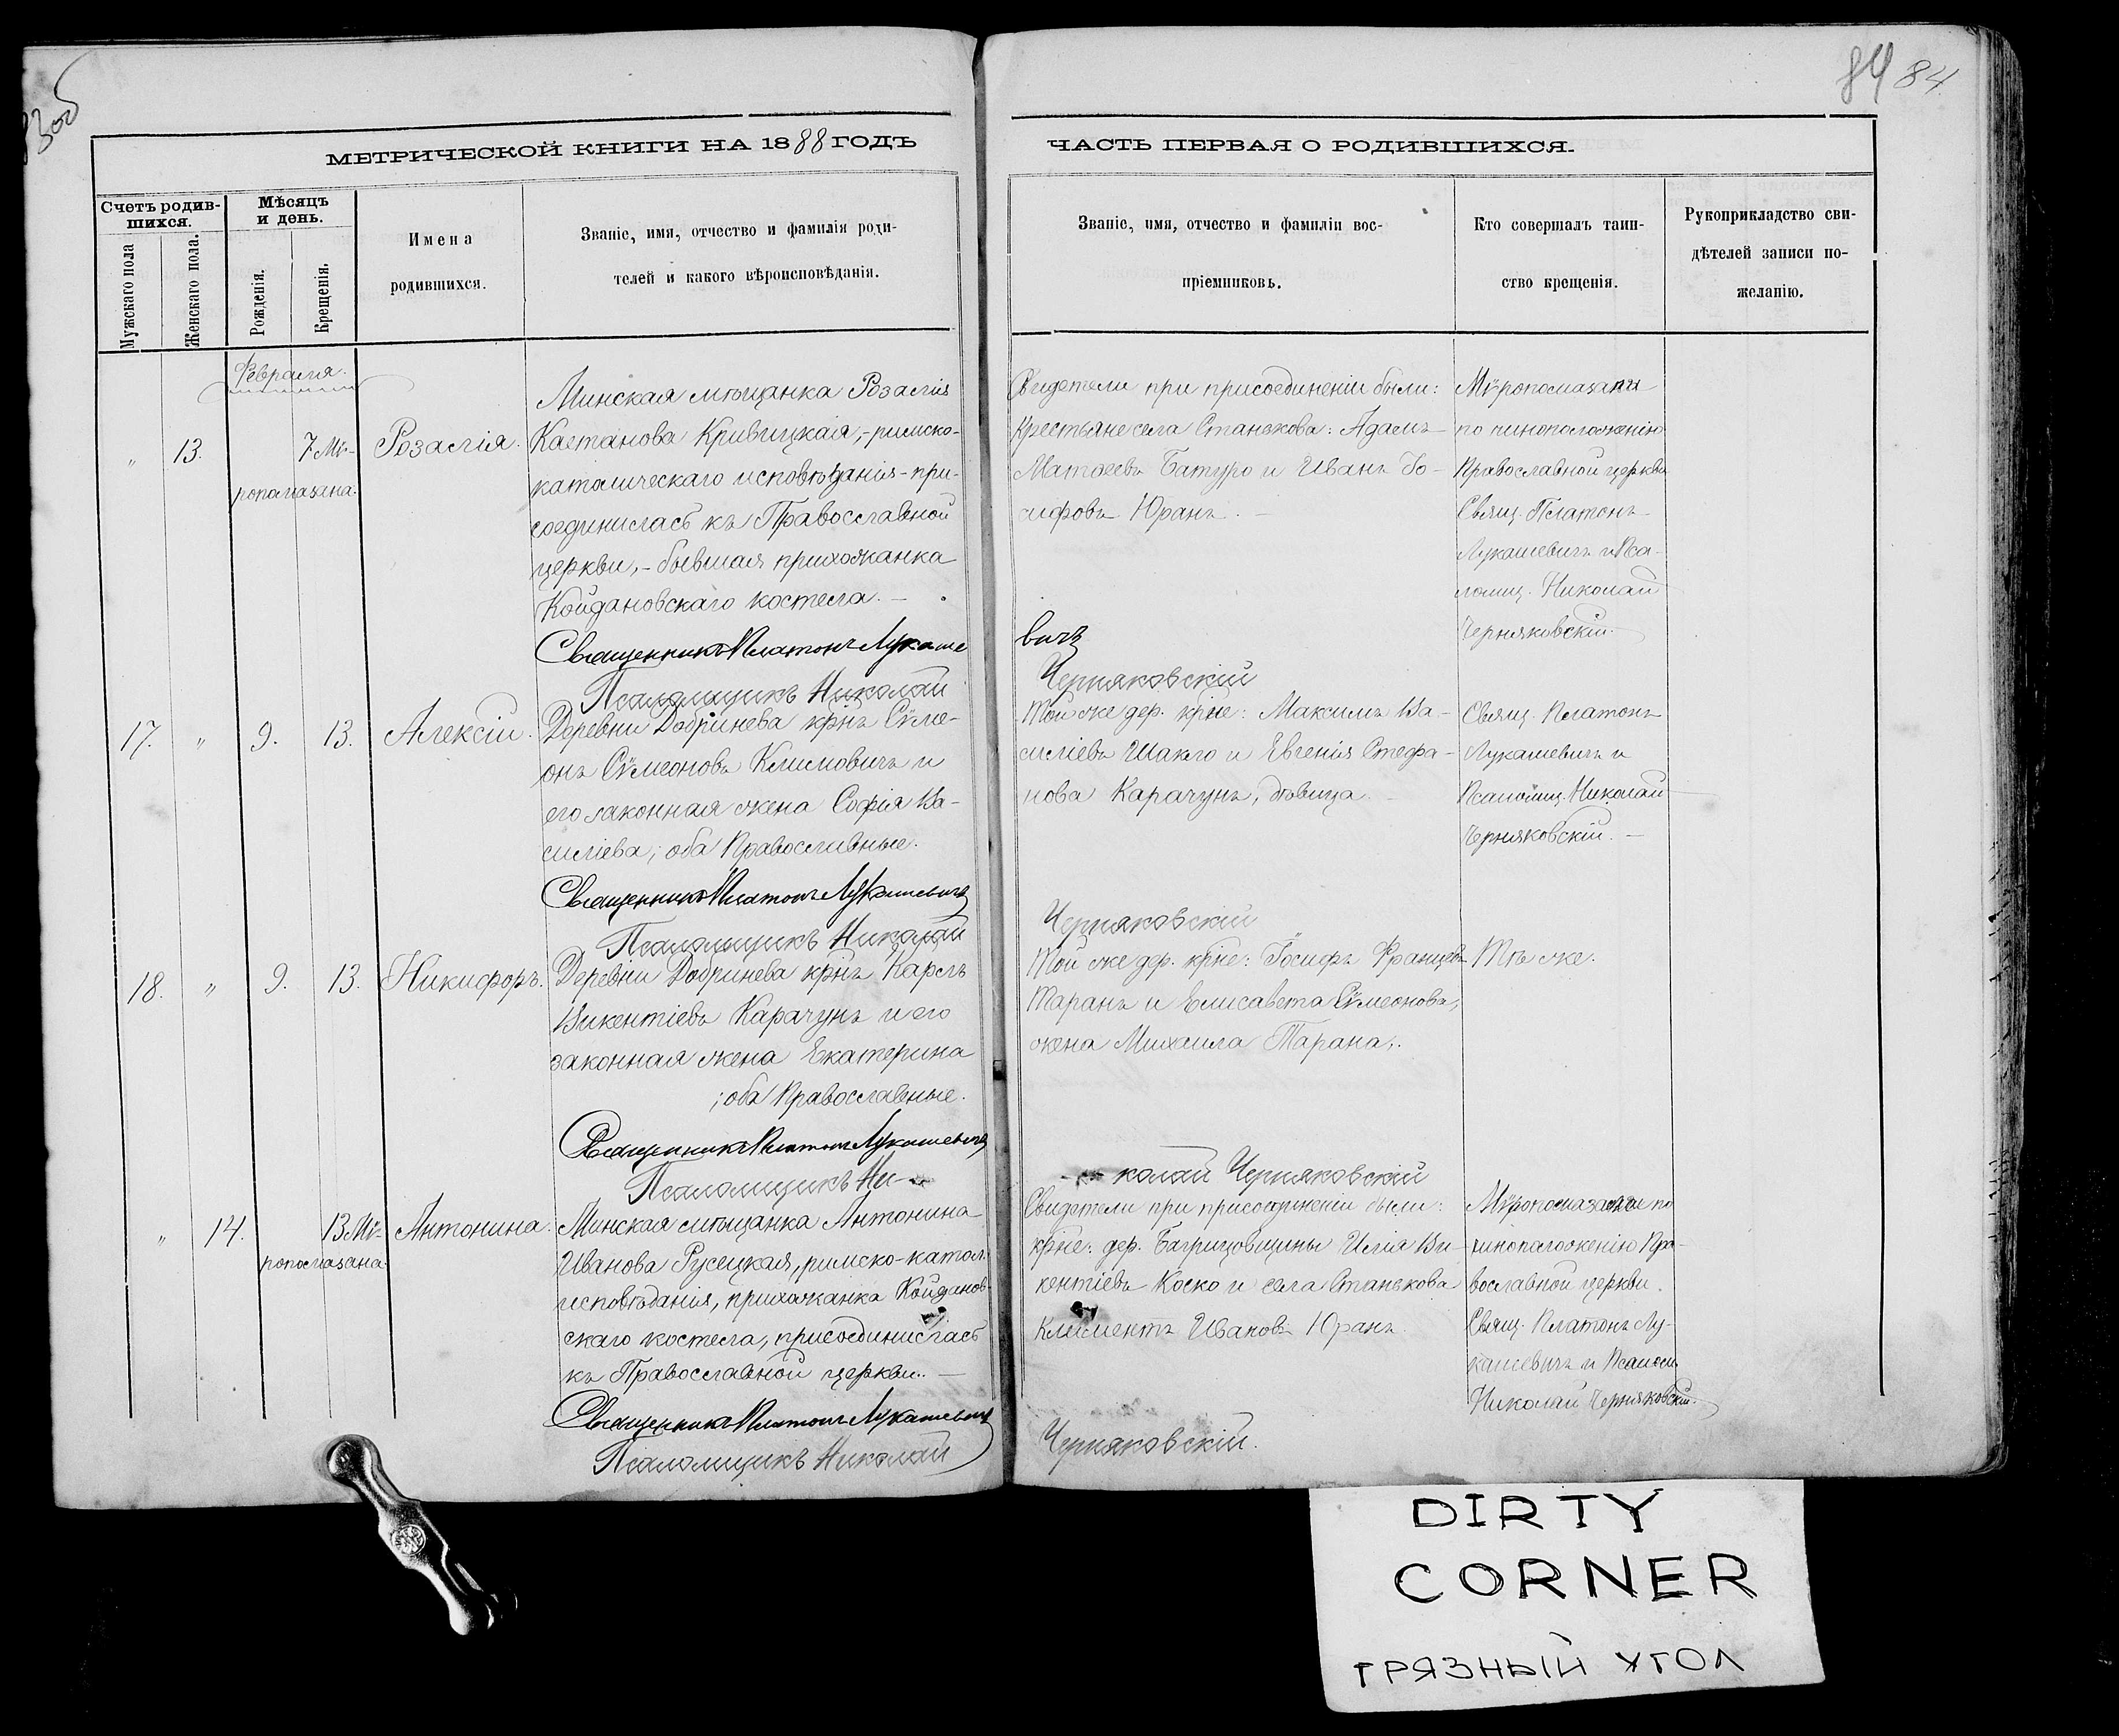 83об
84 84
МЕТРИЧЕСКОЙ КНИГИ НА 1888 ГОДЪ
ЧАСТЬ ПЕРВАЯ О РОДИВШИХСЯ.
Счетъ родив-
шихся.
Мужскаго пола
Женскаго пола.
Мѣсяцъ
и день.
Рожденія.
Крещенія.
Имена
родившихся.
Званіе, имя, отчество и фамилія роди-
телей и какого вѣроисповѣданія.
Званіе, имя, отчество и фамиліи вос-
пріемниковъ.
Кто совершалъ таин-
ство крещенія.
Рукоприкладство сви-
дѣтелей записи по-
желанію.
Февраля.
" 13. 7 Мѵ-
ропомазана.
Розалія.
Минская мѣщанка Розалія
Каетанова Кривицкая,- римско-
католическаго исповѣданія - при-
соединилась къ Православной
церкви, - бывшая прихожанка
Койдановскаго костела. -
Священникъ Платонъ Лукаше
Псаломщикъ Николай
Свидетели при присоединеніи были:
Крестьяне села Станькова: Адамъ
Матѳеевъ Батуро и Иванъ Іо-
сифовъ Юранъ. -
вичъ
Черняковскій
Мѵропомазали
по чиноположенію
Православной церкви
Свящ. Платонъ
Лукашевичъ и Пса-
ломщ. Николай
Черняковскій.
17. " 9. 13. Алексій.
Деревни Добринева крнъ Сѵме-
онъ Сѵмеоновъ Климовичъ и
его законная жена Софія Ва-
силіева; оба Православные.
Священникъ Платонъ Лукашевичъ
Псаломщикъ Николай
Той же дер. крне: Максимъ Ва-
силіевъ Шакго и Евгенія Стефа-
нова Карачунъ, дѣвица.
Черняковскій
Свящ. Платонъ
Лукашевичъ и
Псаломщ. Николай
Черняковскій. -
18. " 9. 13. Никифоръ.
Деревни Добринева крнъ Карлъ
Викентіевъ Карачунъ и его
законная жена Екатерина
; оба Православные.
Священникъ Платонъ Лукашевичъ
Псаломщикъ Ни-
Той же дер. крне: Іосифъ Францевъ
Таранъ и Елисавета Сѵмеонова,
жена Михаила Тарана.
колай Черняковскій
Тѣ же.
" 14. 13 Мѵ-
ропомазана.
Антонина.
Минская мѣщанка Антонина
Иванова Русецкая, римско-катол.
исповѣданія, прихожанка Койданов-
скаго костела, присоединилась
къ Православной церкви. -
Священникъ Платонъ Лукашевичъ
Псаломщикъ Николай
Свидетели при присоединеніи были:
крне: дер. Багрицовщины Илія Ви-
кентіевъ Коско и села Станькова
Климентъ Ивановъ Юранъ.
Черняковскій.
Мѵропомазали по
чиноположенію Пра-
вославной церкви.
Свящ. Платонъ Лу-
кашевичъ и Псаломщ.
Николай Черняковскій.
DIRTY
CORNER
ГРЯЗНЫЙ УГОЛ